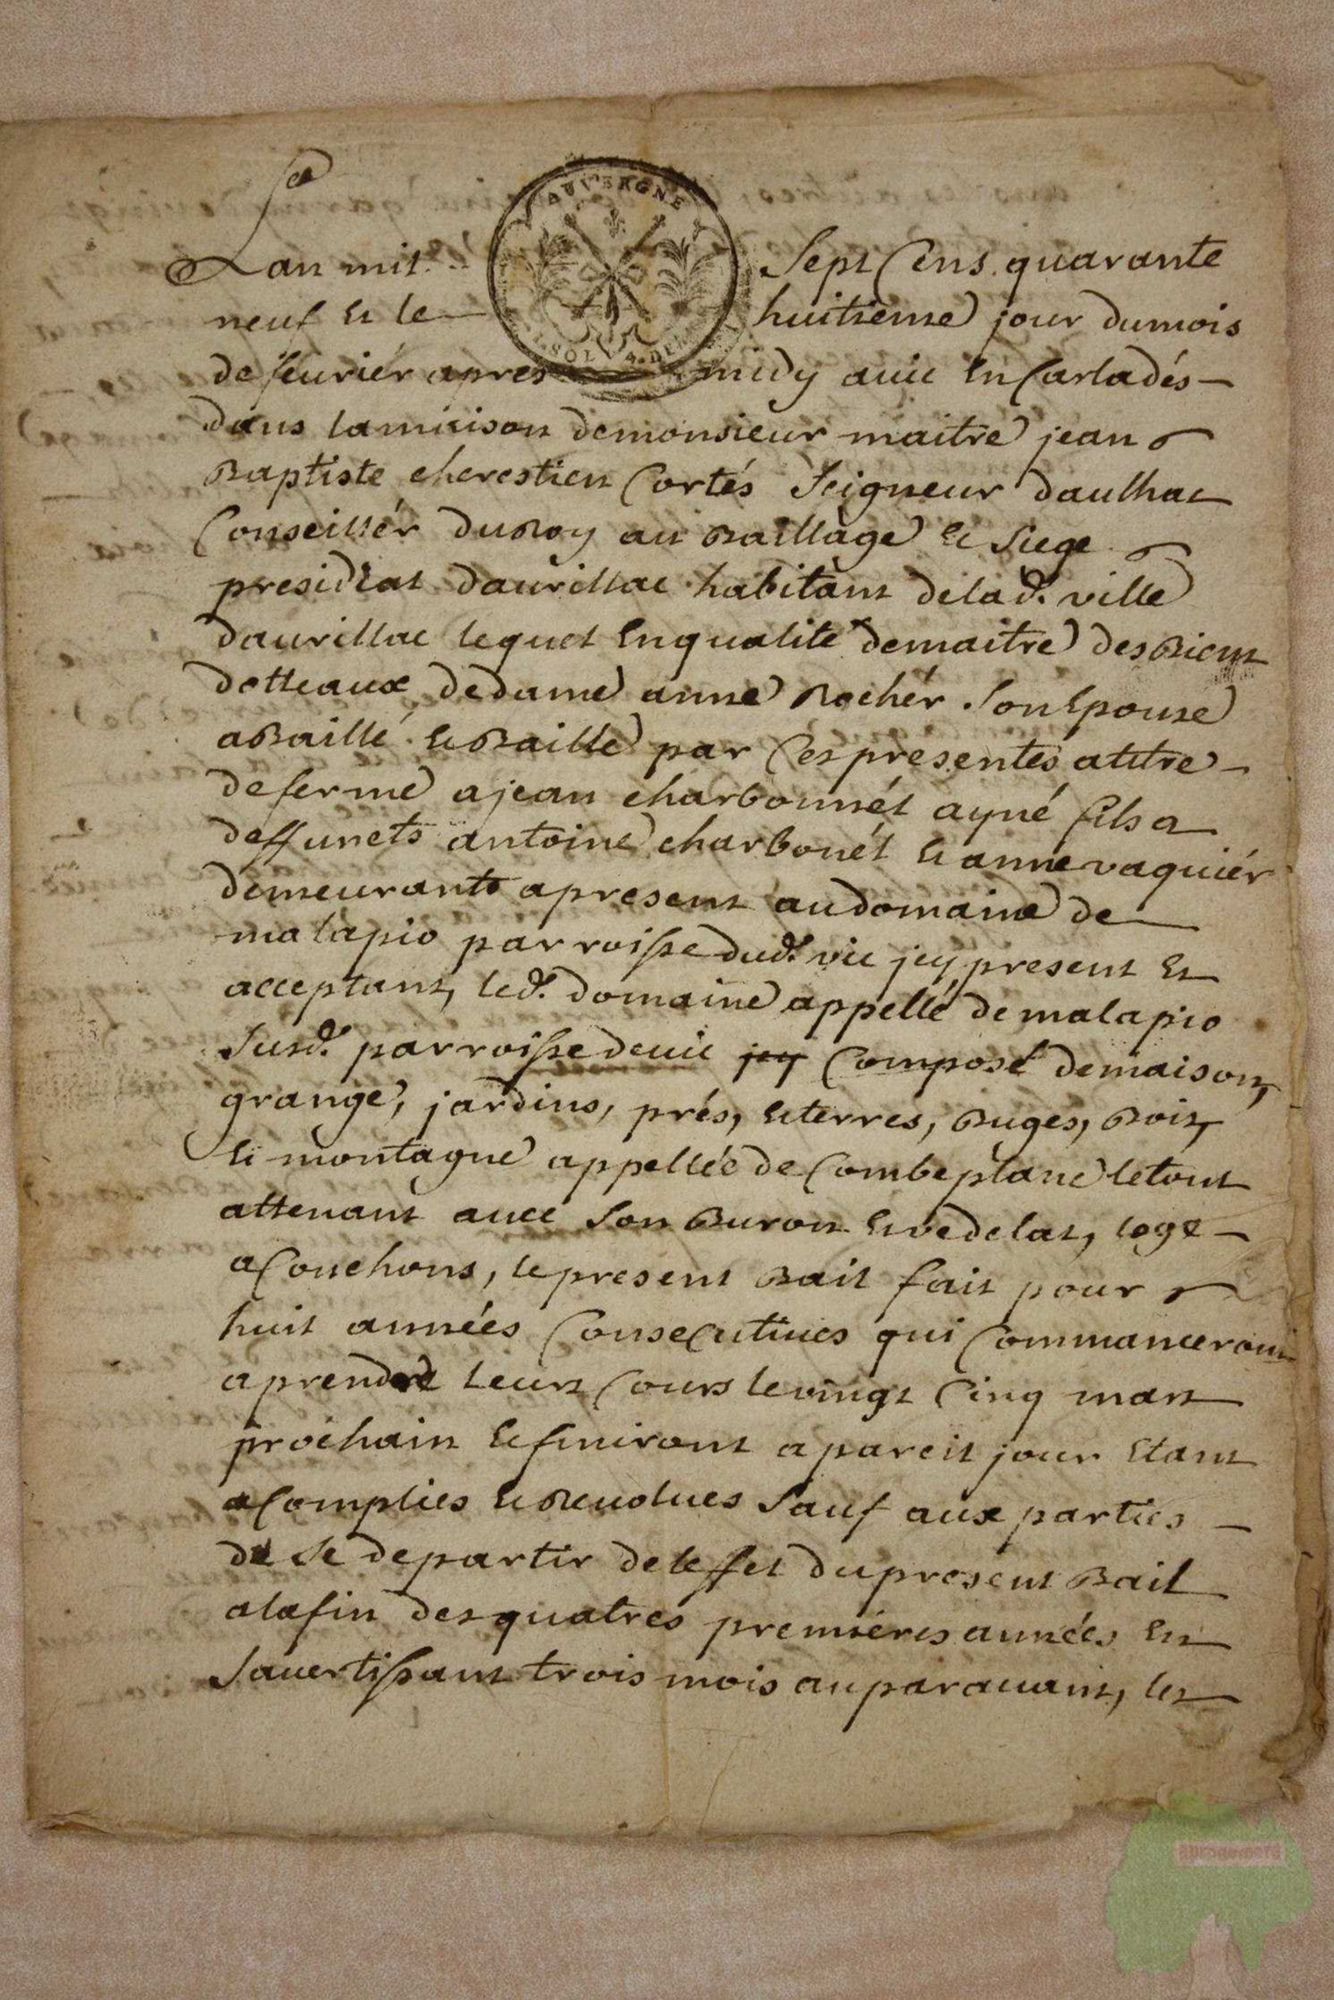 AUVERGNE
Lan mil Sept Cens quarante
neuf et le huitieme jour du mois
de feurier apres midy a vic En Carladés
dans la maison de monsieur maitre jean
Baptiste cherestien Cortés Seigneur daulhac
Conseillér du Roy au Baillàge et Siege
presidial daurillac habitant de lad.e ville
daurillac lequel En qualité de maitre des Biens
dotteaux de dame anne Rochér Son Epouse
a Baillé et Baille par Ces presentes a titre
de ferme a jean charbonnél ayné fils a
deffuncts antoine charbonél et anne vaquiér
demeurant a present au domaine de
malapio parroisse dud. vic jcy present Et
acceptant, led. domaine appellé de malapio
Susd. parroisse de vic jcy Composé de maison,
grange, jardins, prés, et terres, Buges, Bois,
et montagne appellée de Combeplane le tout
attenant avec Son Buron et vedelat, loge
a Couchons, le present Bail fait pour
huit années Consecutiues qui Commanceront
a prendre Leurs Cours le vingt Cinq mars
prochain et finiront a pareil jour Etant
acomplies et Reuolues Sauf aux parties
de Se departir de leffet du present Bail
a la fin des quatres premiéres années En
Sauertissant trois mois auparauant, les